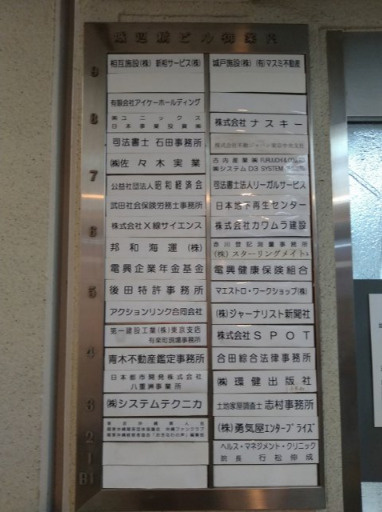 9
相互施設(株) 新和サービス(株)
城戸施設(株) (有)マスミ不動産
8
有限会社アイケーホールディング
株式会社 ナスキー
㈱ユニックス
日本事業投資㈱
司法書士 石田事務所
㈱佐々木実業
㈱システム
7
公益社団法人 昭和経済会
司法書士法人リーガルサービス
武田社会保険労務士事務所
日本地下再生センター
6
株式会社X線サイエンス
株式会社カワムラ建設
邦和海運(株)
(株)スターリングメイト
電興企業年金基金
電興健康保険組合
5
後田特許事務所
マエストロ・ワークショップ(株)
アクションリンク合同会社
(株)ジャーナリスト新聞社
第一建設工業(株)東京支店
有楽町現場事務所
株式会社 SPOT
4
青木不動産鑑定事務所
合田綜合法律事務所
日本都市開発株式会社
八重洲事業所
㈱環健出版社
3
㈱システムテクニカ
土地家屋調査士 志村事務所
2
(株)勇気屋エンタープライズ
1
ヘルス・マネジメント・クリニック
院長 行松伸成
B1